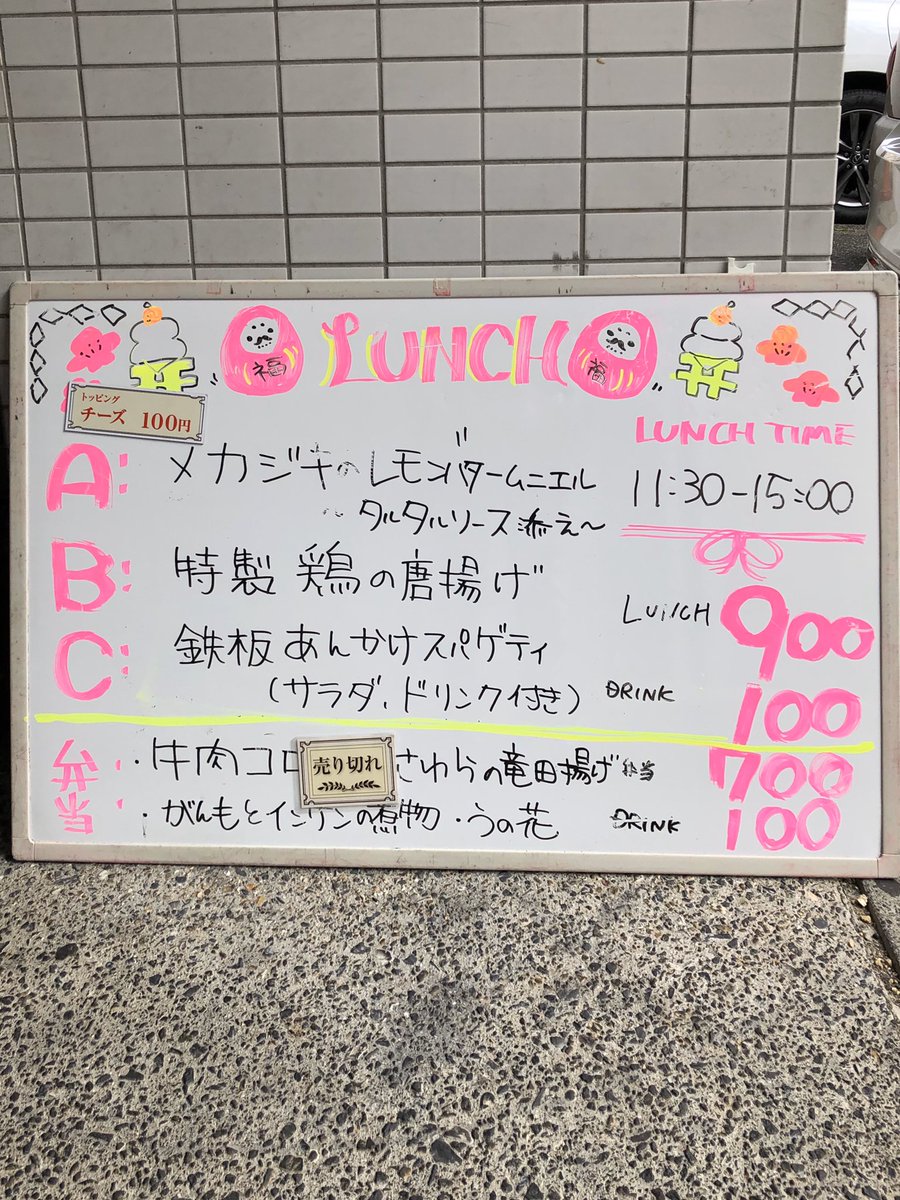 LUNCH
福
福
トッピング
チーズ 100円
LUNCH TIME
11:30-15:00
A: メカジキのレモンバタームニエル
~タルタルソース添え~
B: 特製 鶏の唐揚げ
C: 鉄板あんかけスパゲティ
(サラダ、ドリンク付き)
LUNCH 900
DRINK 100
弁当: ・牛肉コロ
売り切れ
さわらの竜田揚げ 弁当 700
・がんもとインゲンの煮物 ・うの花 DRINK 100